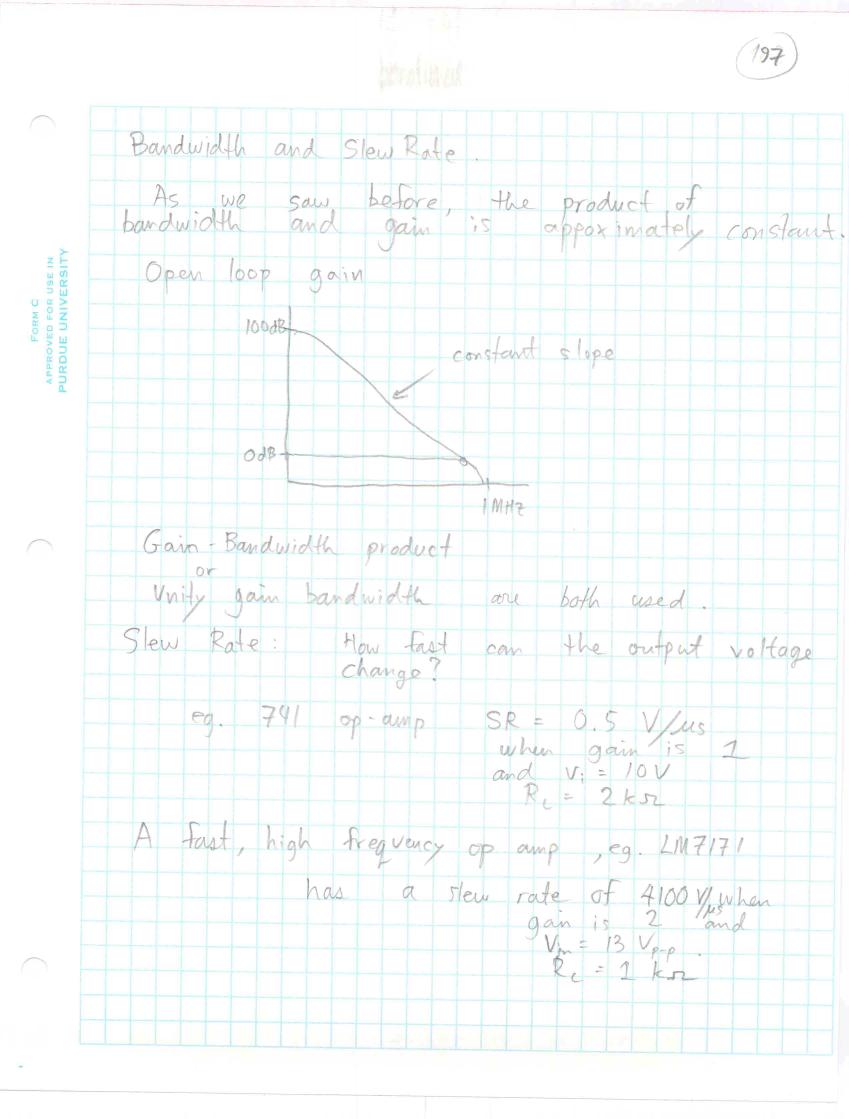 197
Bandwidth and Slew Rate.
As we saw before, the product of
bandwidth and gain is appoximately constant.
Open loop gain
100dB
constant slope
0dB
1MHz
Gain-Bandwidth product
or
Unity gain bandwidth are both used.
Slew Rate: How fast can the output voltage
change?
eg. 741 op-amp SR = 0.5 V/µs
when gain is 1
and Vi = 10V
RL = 2kΩ
A fast, high frequency op amp, eg. LM7171
has a slew rate of 4100 V/µs when
gain is 2 and
Vin = 13 Vp-p.
RL = 1 kΩ
FORM C
APPROVED FOR USE IN
PURDUE UNIVERSITY